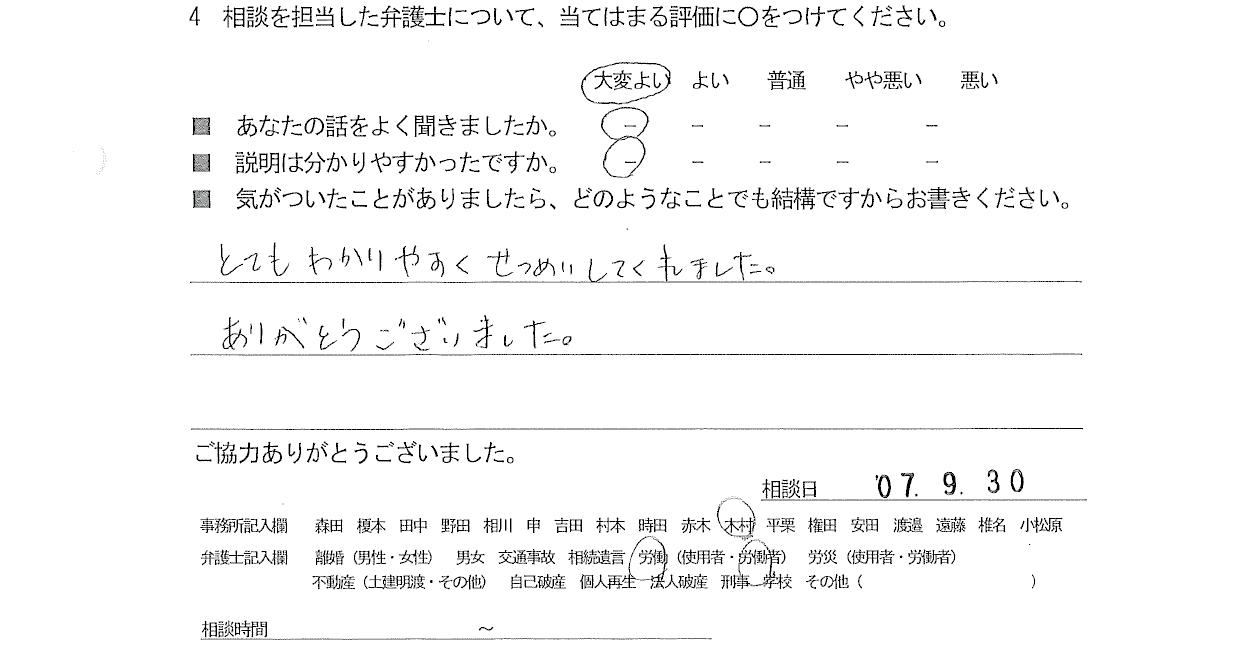 4 相談を担当した弁護士について、当てはまる評価に〇をつけてください。
大変よい よい 普通 やや悪い 悪い
■ あなたの話をよく聞きましたか。 － － － － －
■ 説明は分かりやすかったですか。 － － － － －
■ 気がついたことがありましたら、どのようなことでも結構ですからお書きください。
とてもわかりやすく せつめいしてくれました。
ありがとうございました。
ご協力ありがとうございました。
相談日 '07. 9. 30
事務所記入欄 森田 榎本 田中 野田 相川 申 吉田 村本 時田 赤木 木村 平栗 権田 安田 渡邉 遠藤 椎名 小松原
弁護士記入欄 離婚（男性・女性） 男女 交通事故 相続遺言 労働（使用者・労働者） 労災（使用者・労働者）
不動産（土建明渡・その他） 自己破産 個人再生 法人破産 刑事 学校 その他（ ）
相談時間 ～